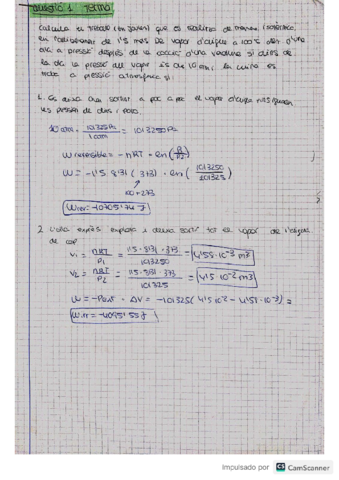 Qüestió 1 Termo
Calcula el treball (en joules) que es realitza de manera isotèrmica
en l'alliberament de 1'5 mols de vapor d'aigua a 100°C dins d'una
olla a pressió després de la cocció d'una verdura si dins de
la olla la pressió del vapor és de 10 atm i la cuina es
troba a pressió atmosfèrica si:
1. Es deixa anar sortint a poc a poc el vapor d'aigua mentre
les pressions de dins i fora.
10 atm · 101325 Pa / 1 atm = 1013250 Pa
W reversible = - nRT · ln (P1/P2)
W = -1'5 · 8'31 · (373) · ln (1013250/101325)
100+273
Wrev = -10705'74 J
2. L'olla exprés explota i deixa sortir tot el vapor de l'aigua
de cop
V1 = nRT/P1 = 1'5 · 8'31 · 373 / 1013250 = 4'59·10-3 m3
V2 = nRT/P2 = 1'5 · 8'31 · 373 / 101325 = 4'5·10-2 m3
W = -Pext · ΔV = -101325 (4'5·10-2 - 4'59·10-3) =
Wirr = -4095'55 J
Impulsado por CS CamScanner